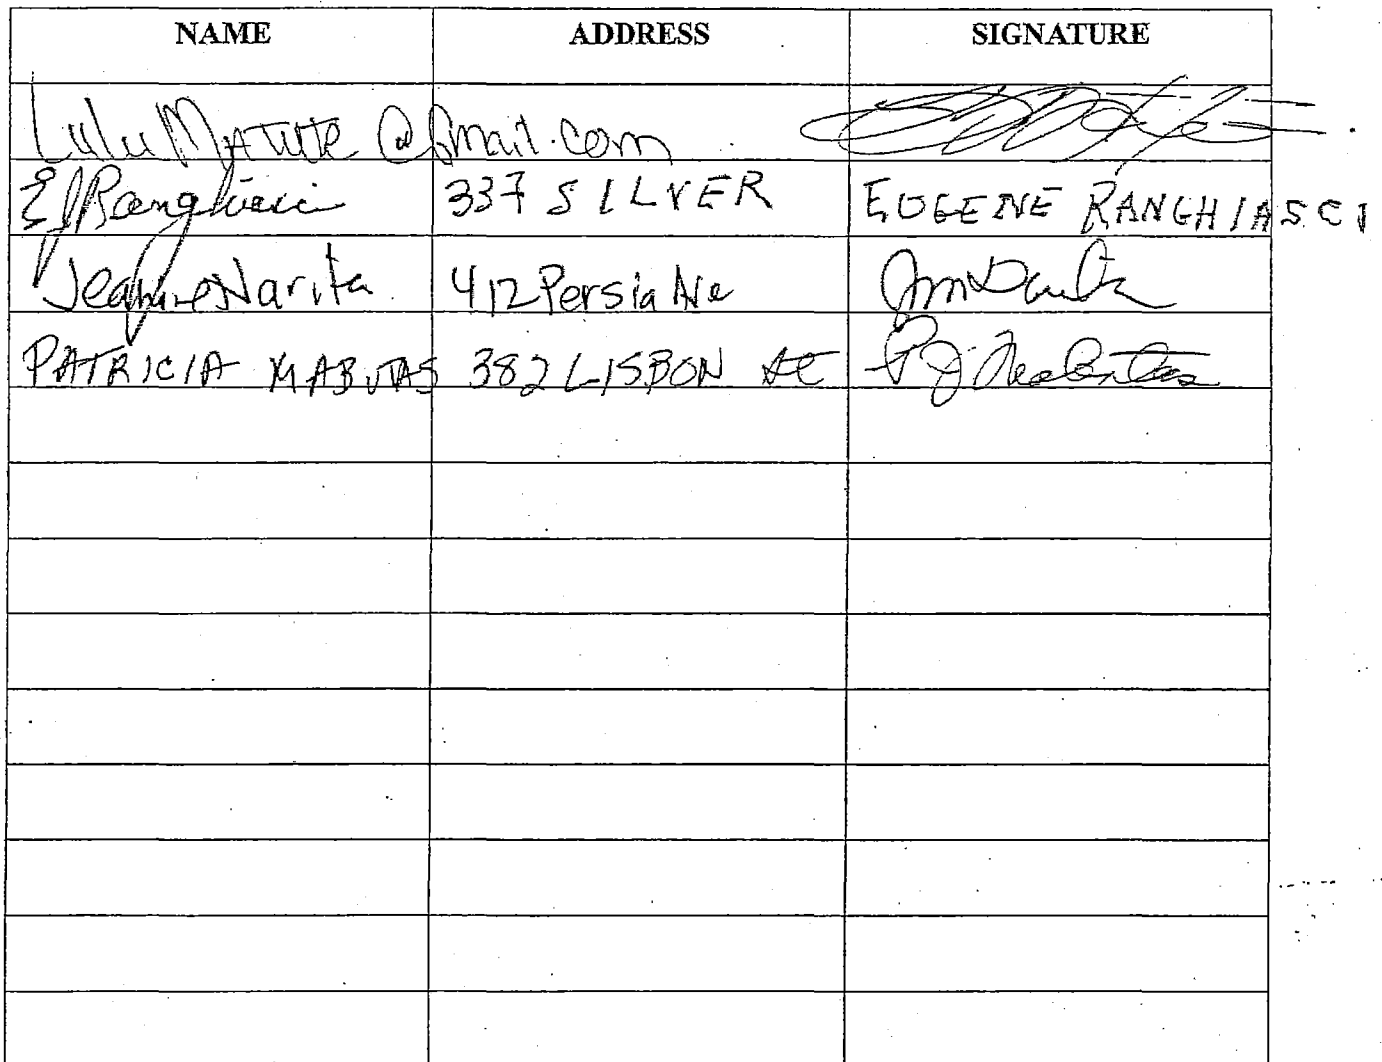 NAME ADDRESS SIGNATURE
LuluMATUTE@gmail.com
EJ Ranghiasci 337 SILVER EUGENE RANGHIASCI
Jeanine Narita 412 Persia Ave
PATRICIA MABUTAS 382 LISBON St